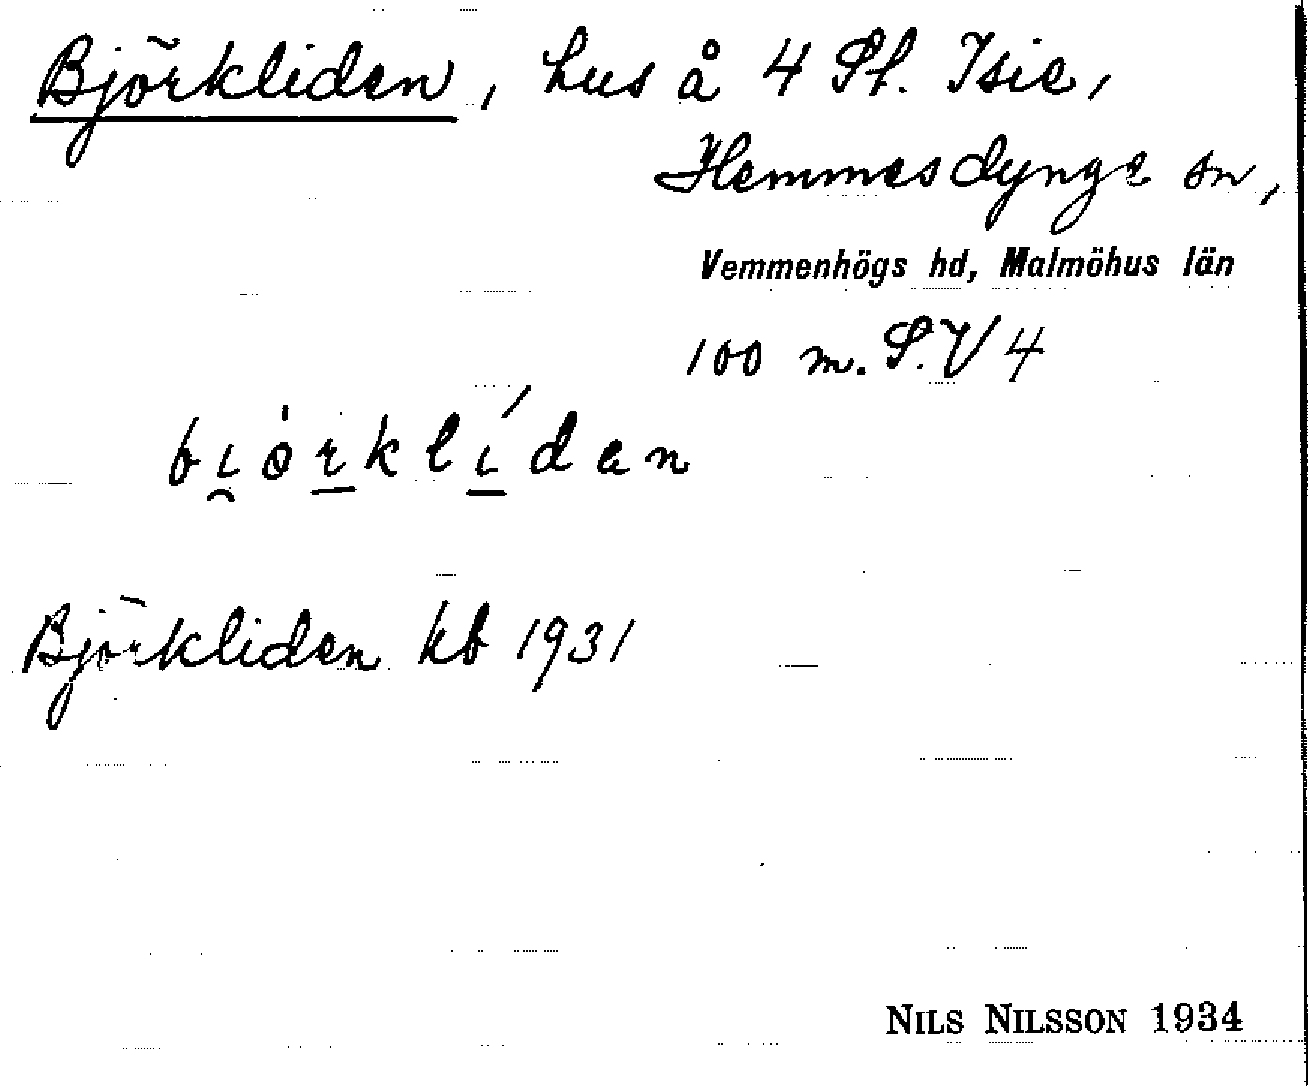 Björkliden, hus å 4 St. Isie,
Hemmesdynge sn,
Vemmenhögs hd, Malmöhus län
100 m. S.V 4
Björkliden kb 1931
NILS NILSSON 1934